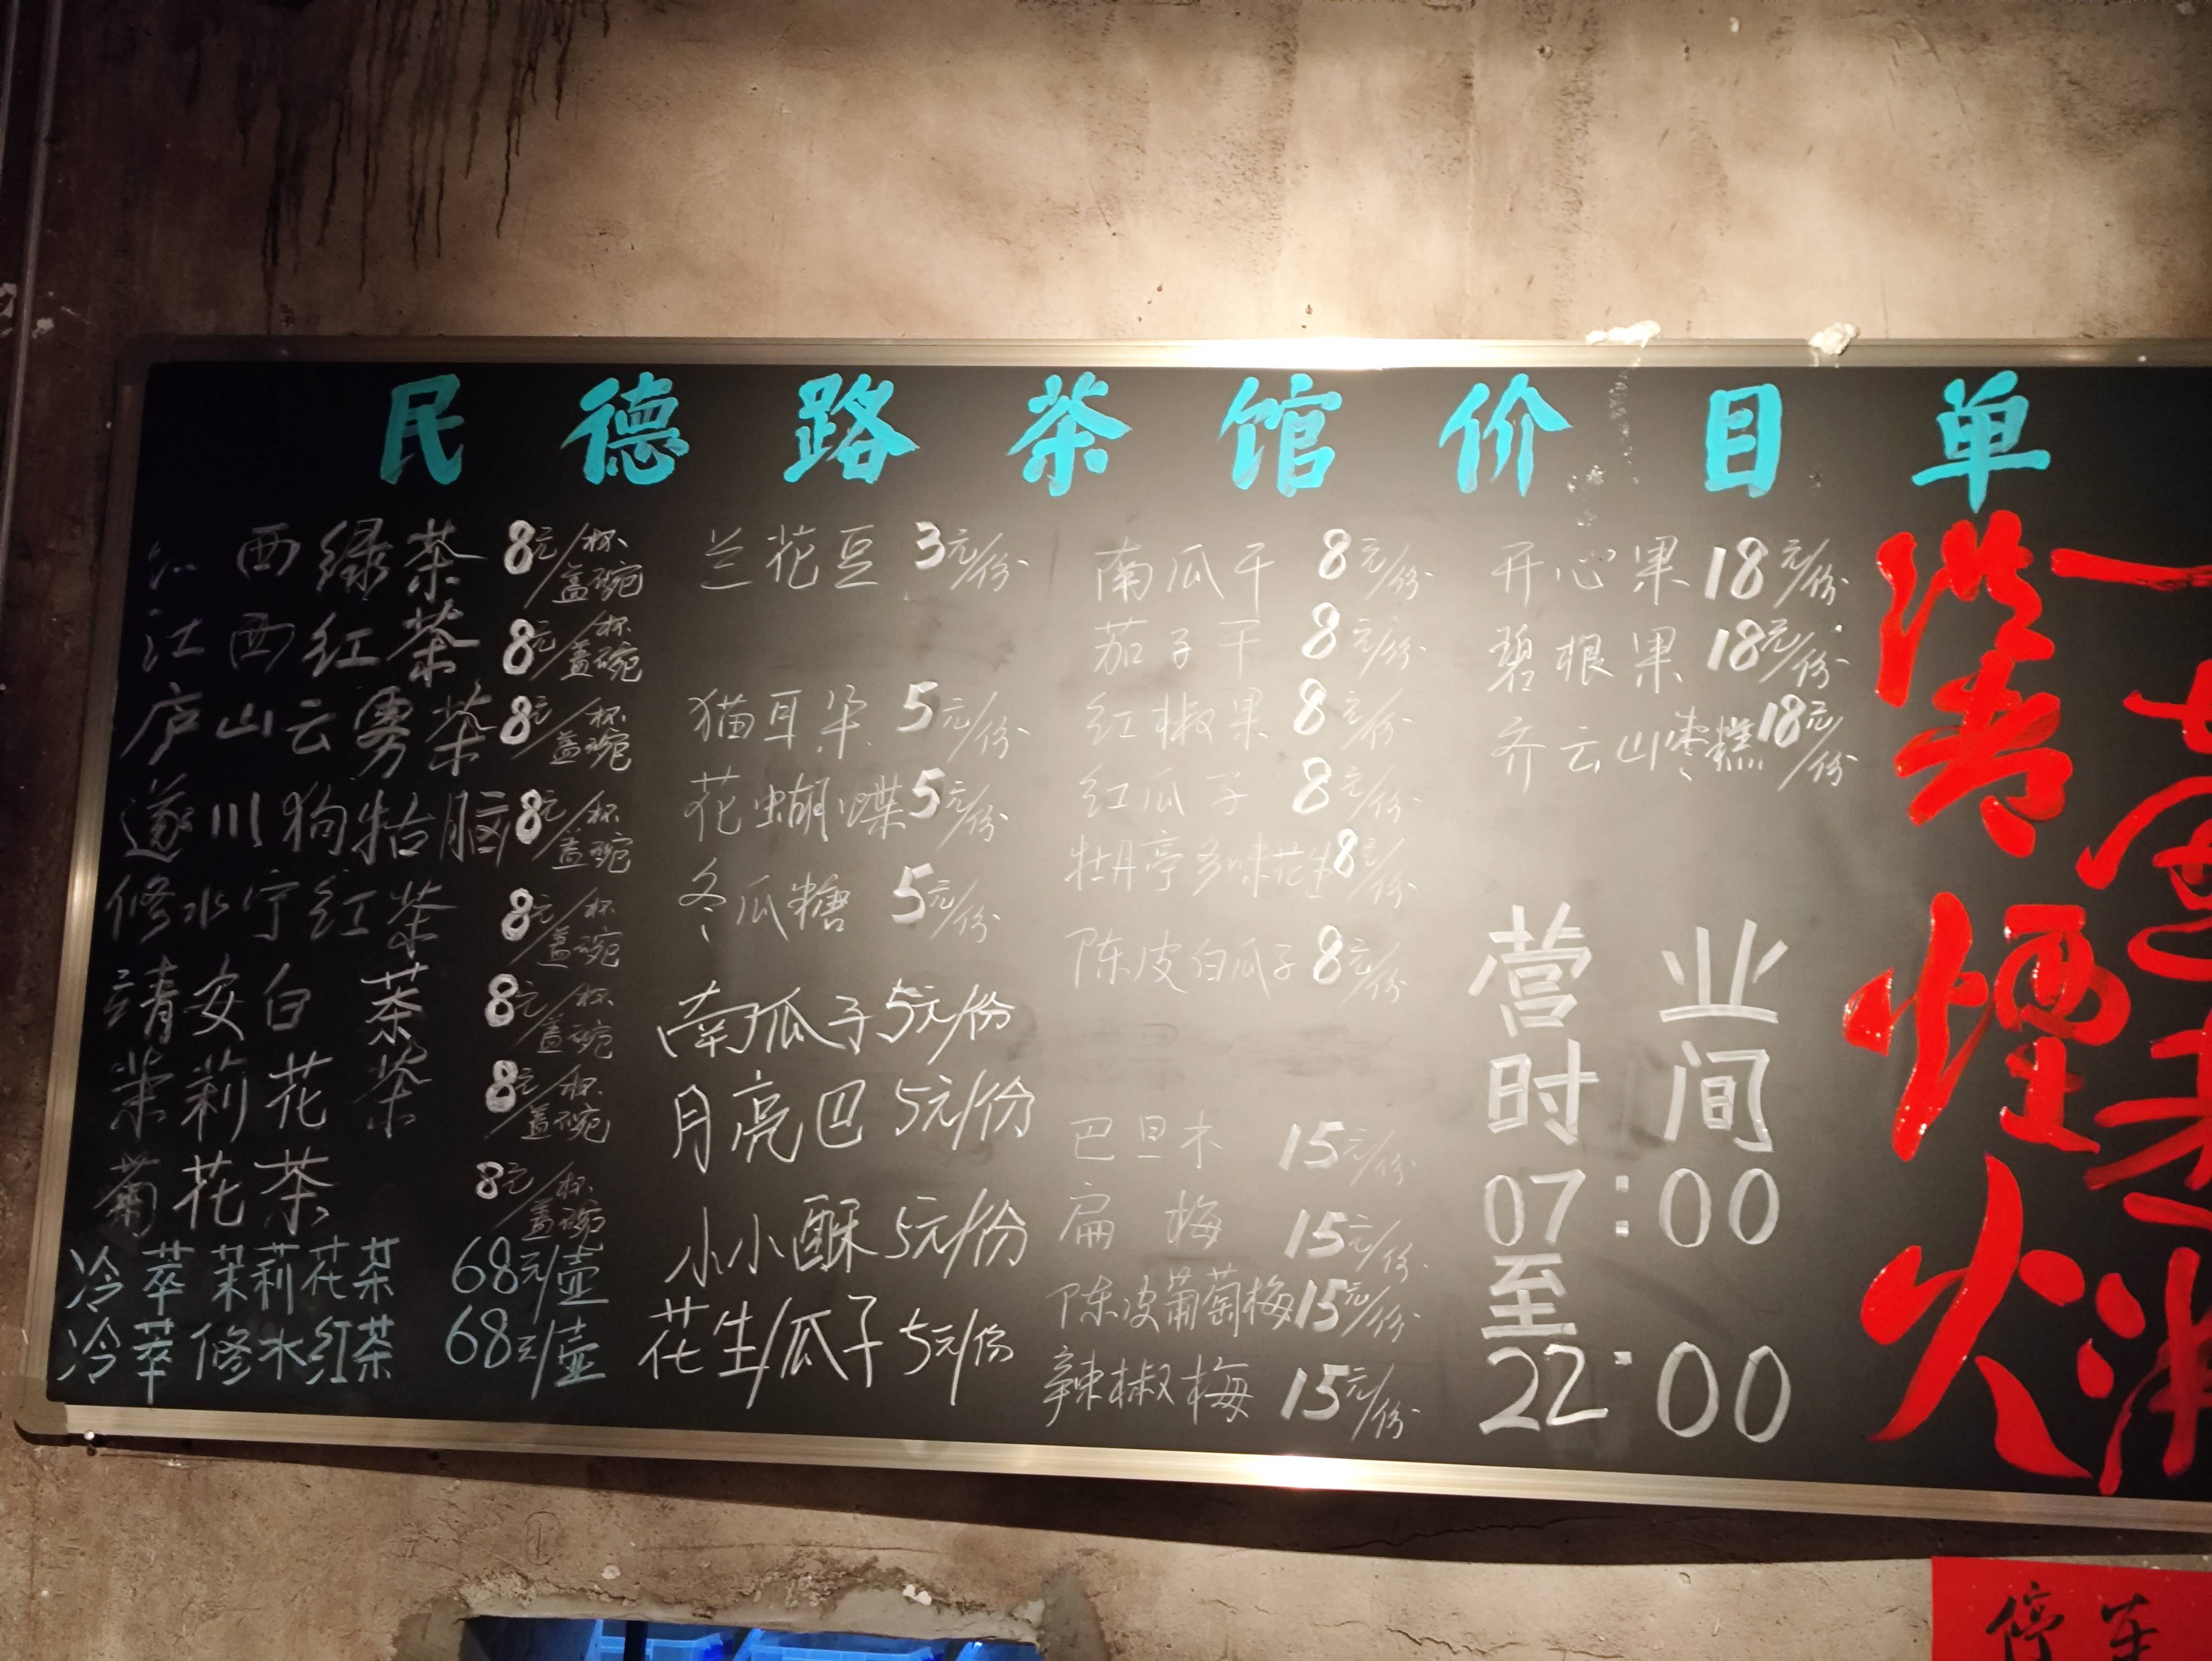 民德路茶馆价目单
江西绿茶 8元/杯 盖碗
江西红茶 8元/杯 盖碗
庐山云雾茶 8元/杯 盖碗
遂川狗牯脑 8元/杯 盖碗
修水宁红茶 8元/杯 盖碗
靖安白茶 8元/杯 盖碗
茉莉花茶 8元/杯 盖碗
菊花茶 8元/杯 盖碗
冷萃茉莉花茶 68元/壶
冷萃修水红茶 68元/壶
兰花豆 3元/份
猫耳朵 5元/份
花蝴蝶 5元/份
冬瓜糖 5元/份
南瓜子 5元/份
月亮巴 5元/份
小小酥 5元/份
花生/瓜子 5元/份
南瓜干 8元/份
茄子干 8元/份
红椒果 8元/份
红瓜子 8元/份
牡丹亭多味花生 8元/份
陈皮白瓜子 8元/份
巴旦木 15元/份
扁梅 15元/份
陈皮葡萄梅 15元/份
辣椒梅 15元/份
开心果 18元/份
碧根果 18元/份
齐云山枣糕 18元/份
营业
时间
07:00
至
22:00
煙火
停车